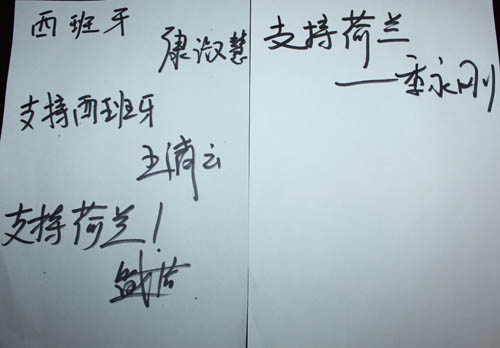 西班牙
康淑慧
支持西班牙
支持荷兰!
支持荷兰
——季永刚